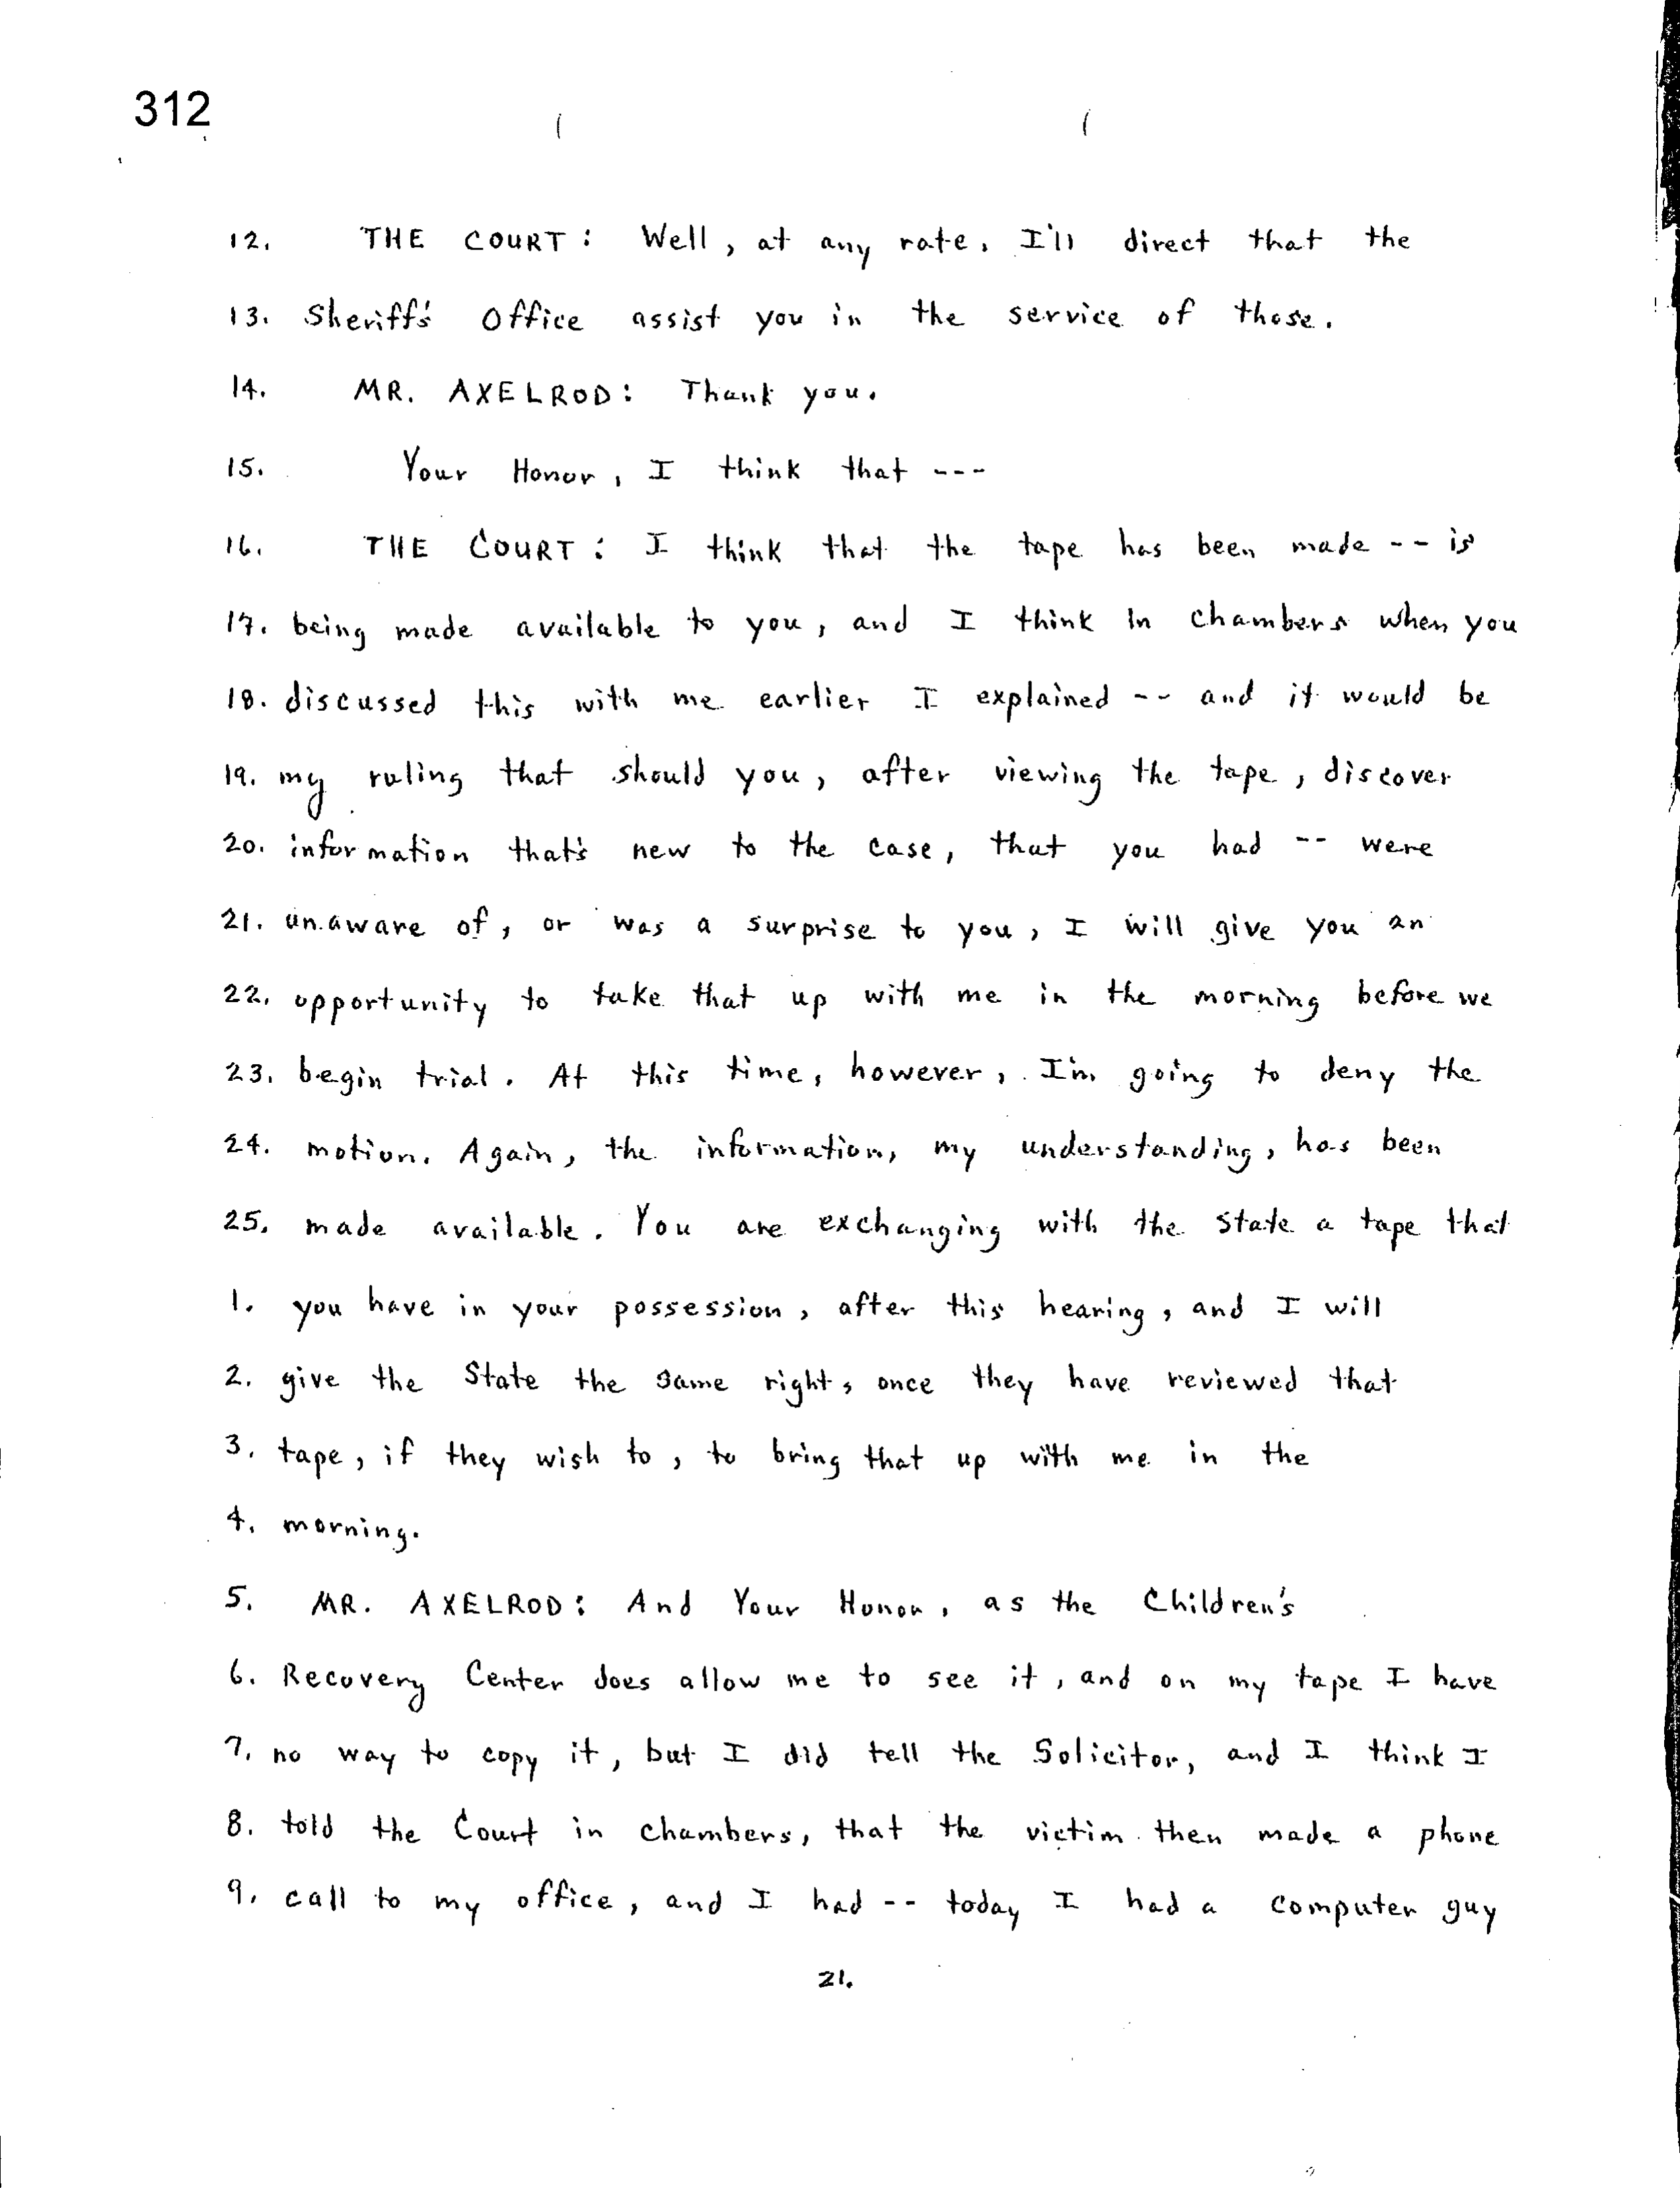 312
12. THE COURT: Well, at any rate, I'll direct that the
13. Sheriff's Office assist you in the service of those.
14. MR. AXELROD: Thank you.
15. Your Honor, I think that ---
16. THE COURT: I think that the tape has been made -- is
17. being made available to you, and I think in chambers when you
18. discussed this with me earlier I explained -- and it would be
19. my ruling that should you, after viewing the tape, discover
20. information that's new to the case, that you had -- were
21. unaware of, or was a surprise to you, I will give you an
22. opportunity to take that up with me in the morning before we
23. begin trial. At this time, however, I'm going to deny the
24. motion. Again, the information, my understanding, has been
25. made available. You are exchanging with the State a tape that
1. you have in your possession, after this hearing, and I will
2. give the State the same right, once they have reviewed that
3. tape, if they wish to, to bring that up with me in the
4. morning.
5. MR. AXELROD: And Your Honor, as the Children's
6. Recovery Center does allow me to see it, and on my tape I have
7. no way to copy it, but I did tell the Solicitor, and I think I
8. told the Court in chambers, that the victim then made a phone
9. call to my office, and I had -- today I had a computer guy
21.